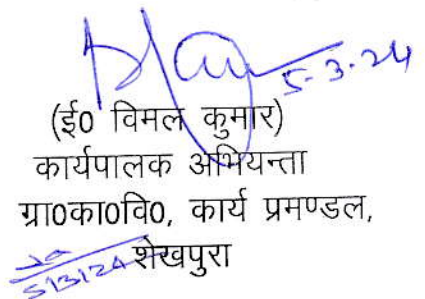 5-3-24
(ई0 विमल कुमार)
कार्यपालक अभियन्ता
ग्रा0का0वि0, कार्य प्रमण्डल,
शेखपुरा
5/3/24